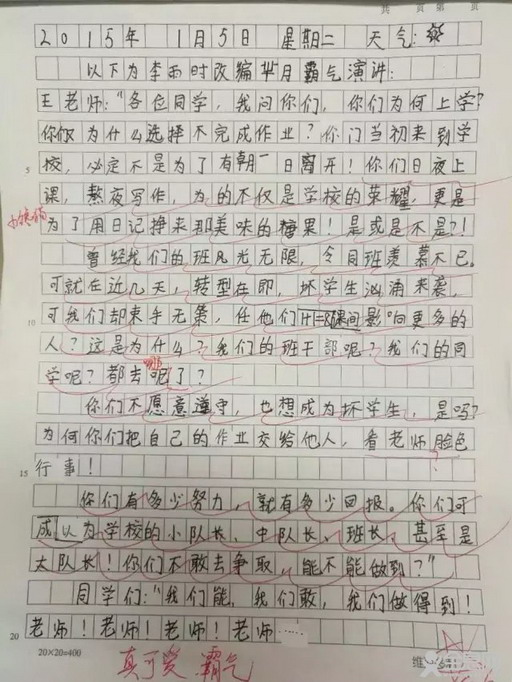 共 页 第 页
2015年 1月5日 星期二 天气:
以下为李雨时改编芈月霸气演讲:
王老师:“各位同学,我问你们,你们为何上学?
你们又为什么选择不完成作业?你门当初来到学
5 校,必定不是为了有朝一日离开!你们日夜上
课,熬夜写作,为的不仅是学校的荣耀,更是
为了用日记挣来那美味的糖果!是或是不是?!
曾经我们的班风光无限,令同班羡慕不已。
可就在近几天,转型在即,坏学生汹涌来袭,
10 可我们却束手无策,任他们课间影响更多的
人?这是为什么?我们的班干部呢?我们的同
学呢?都去呢了?
你们不愿意遵守,也想成为坏学生,是吗?
为何你们把自己的作业交给他人,看老师脸色
15 行事!
你们有多少努力,就有多少回报。你们可
成以为学校的小队长、中队长、班长,甚至是
大队长!你们不敢去争取,能不能做到?”
同学们:“我们能,我们敢,我们做得到!
20 老师!老师!老师!老师……
20×20=400
真可爱 霸气